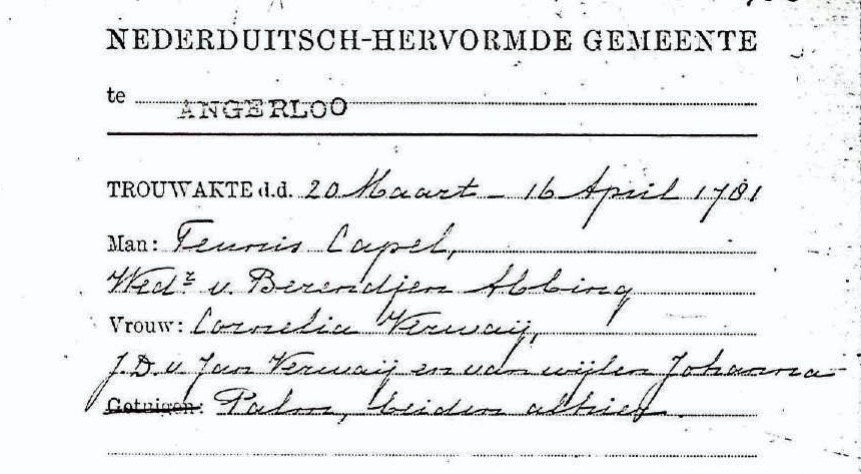 NEDERDUITSCH-HERVORMDE GEMEENTE
te ANGERLOO
TROUWAKTE d.d. 20 Maart - 16 April 1781
Man: Teunis Capel,
Wedr v. Berendjen Abbing
Vrouw: Cornelia Verwaij,
J.D. v. Jan Verwaij en van wijlen Johanna
Getuigen: Palm, beiden alhier.